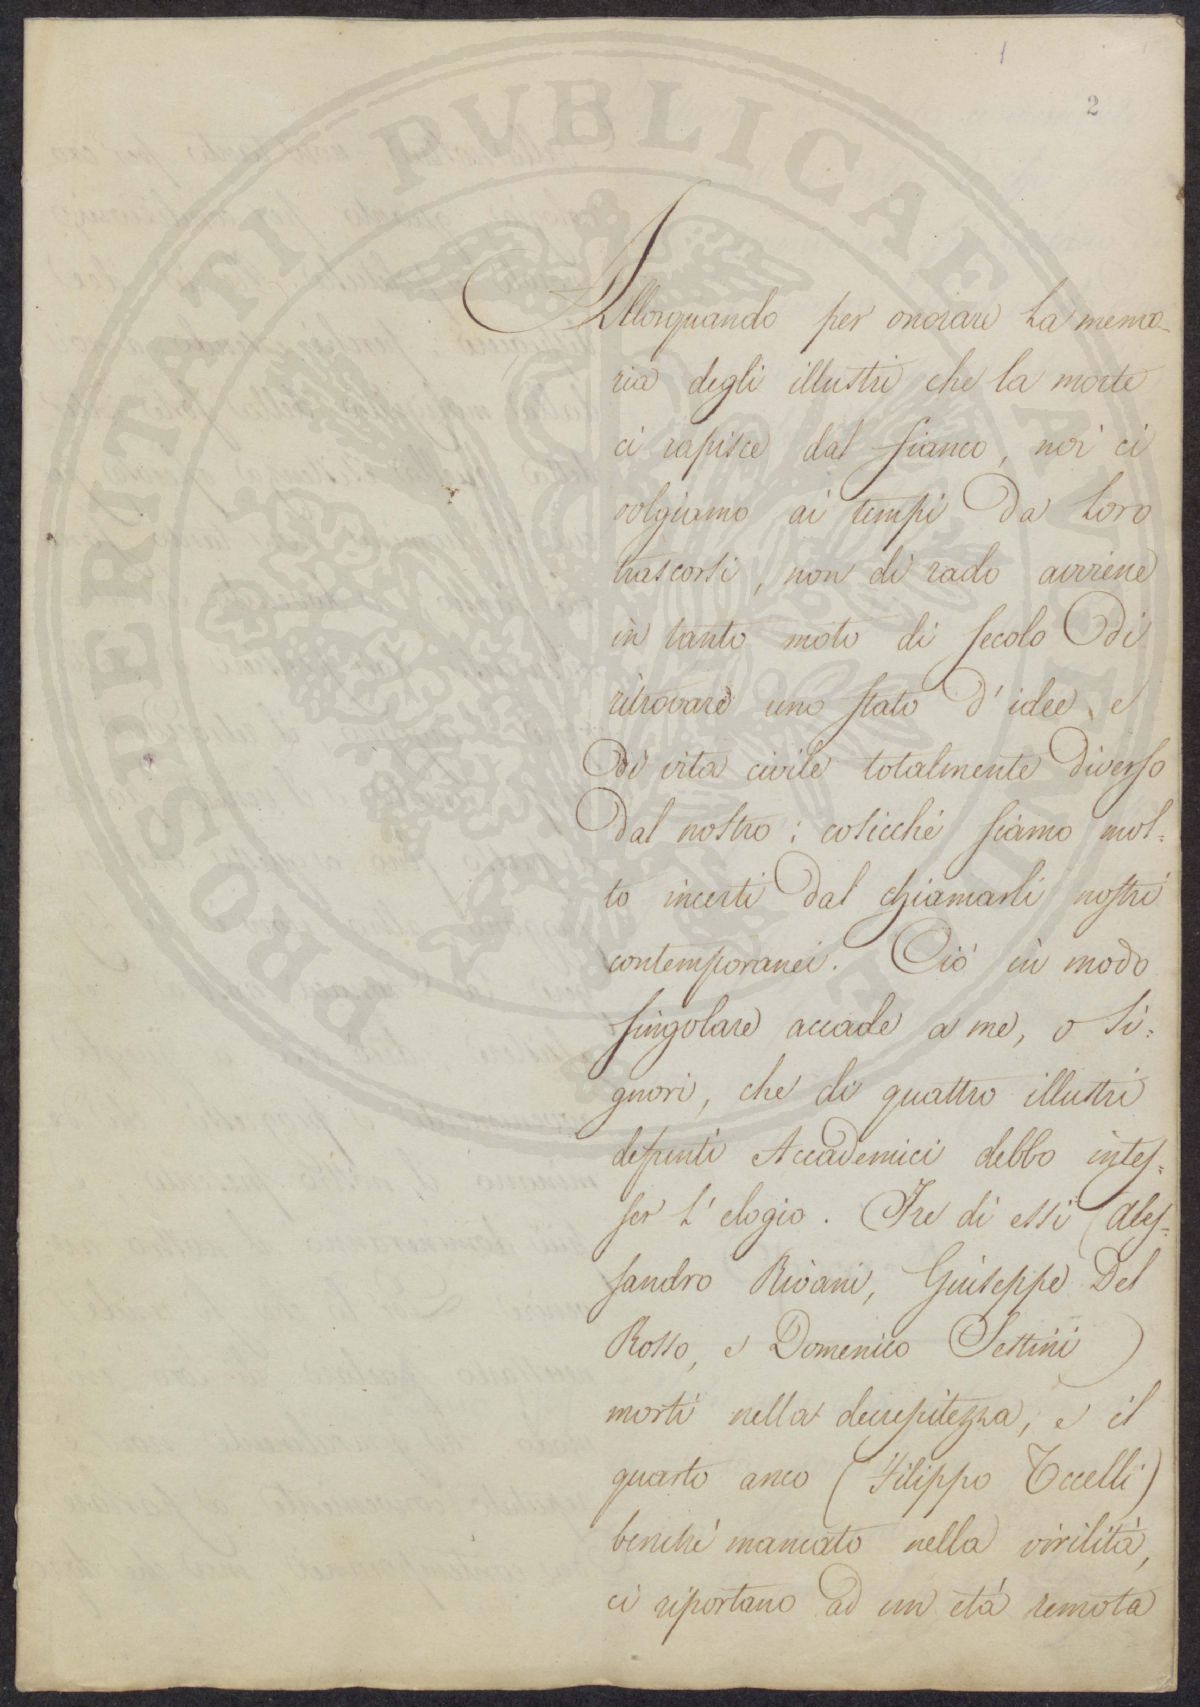 1
2
Allorquando per onorare la memo-
ria degli illustri che la morte
ci rapisce dal fianco, noi ci
volgiamo ai tempi da loro
trascorsi, non di rado avviene
in tanto moto di secolo di
ritrovare uno stato d'idee, e
di vita civile totalmente diverso
dal nostro: cosicchè siamo mol=
to incerti dal chiamarli nostri
contemporanei. Ciò in modo
singolare accade a me, o Si=
gnori, che di quattro illustri
defunti Accademici debbo intes=
ser l'elogio. Tre di essi (Ales=
sandro Rivani, Giuseppe Del
Rosso, e Domenico Sestini)
morti nella decrepitezza, e il
quarto anco (Filippo Uccelli)
benchè mancato nella virilità,
ci riportano ad un età remota
PROSPERITATI PVBLICAE AVGENDAE